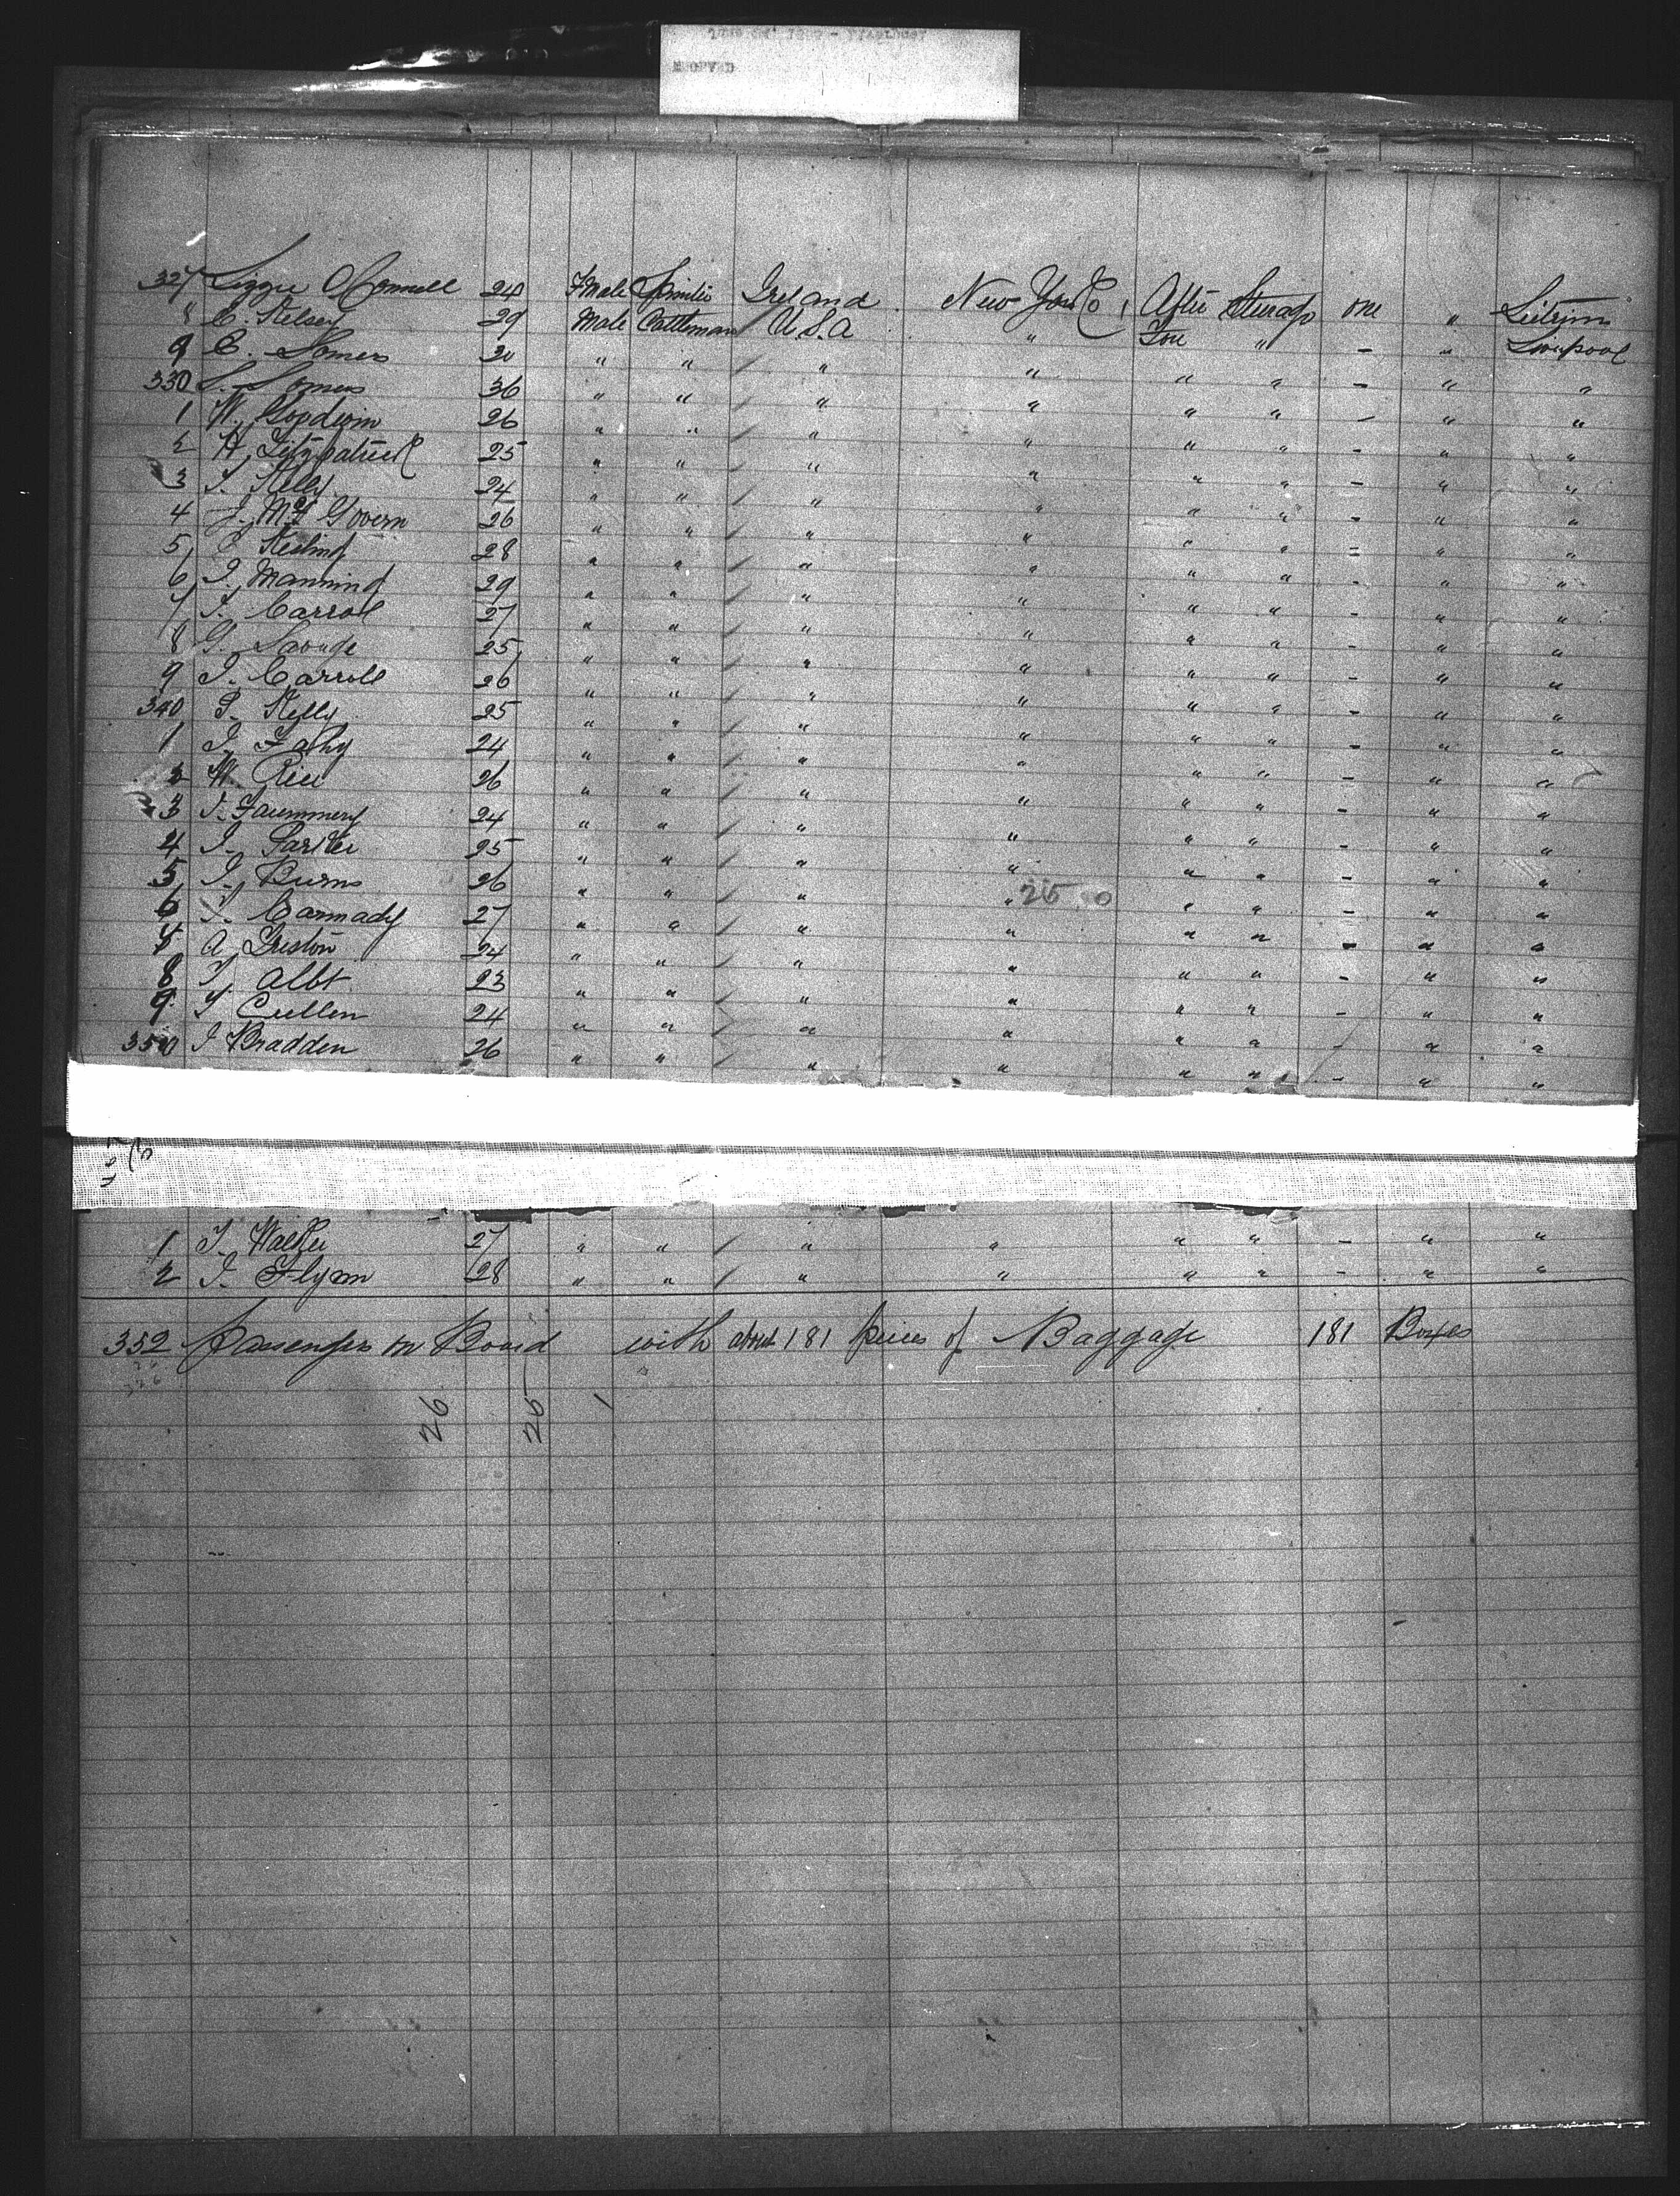 327 Lizzie O'Connell 24 Fmale Spinster Ireland New York 1 After Steerage one " Leitrim
8 C. Kelsey 29 Male Cattleman / U.S.A " Fore " - " Liverpool
9 C. Somers 20 " " / " " " " - " "
330 S. Somers 36 " " / " " " " - " "
1 W. Goodwin 26 " " / " " " " - " "
2 H. Fitzpatrick 25 " " / " " " " - " "
3 T. Kelly 24 " " / " " " " - " "
4 J. McGovern 26 " " / " " " " - " "
5 Kesling 28 " " / " " " " - " "
6 J. Manning 29 " " / " " " " - " "
7 T. Carrol 27 " " / " " " " - " "
8 G. Savage 25 " " / " " " " - " "
9 J. Carroll 26 " " / " " " " - " "
340 P. Kelly 25 " " / " " " " - " "
1 J. Fahy 24 " " / " " " " - " "
2 W. Rice 26 " " / " " " " - " "
3 24 " " / " " " " - " "
4 J. Parker 25 " " / " " " " - " "
5 J. Burns 26 " " / " " " " - " "
6 T. Carmady 27 " " / " " " " - " "
7 A. 24 " " / " " " " - " "
8 T. Albt 23 " " / " " " " - " "
9 T. Cullen 24 " " / " " " " - " "
350 J Bradden 26 " " / " " " " - " "
1 T. Walker 27 " " / " " " " - " "
2 J. Flynn 28 " " / " " " " - " "
352 Passengers on Board with about 181 pieces of Baggage 181 Boxes
26 26